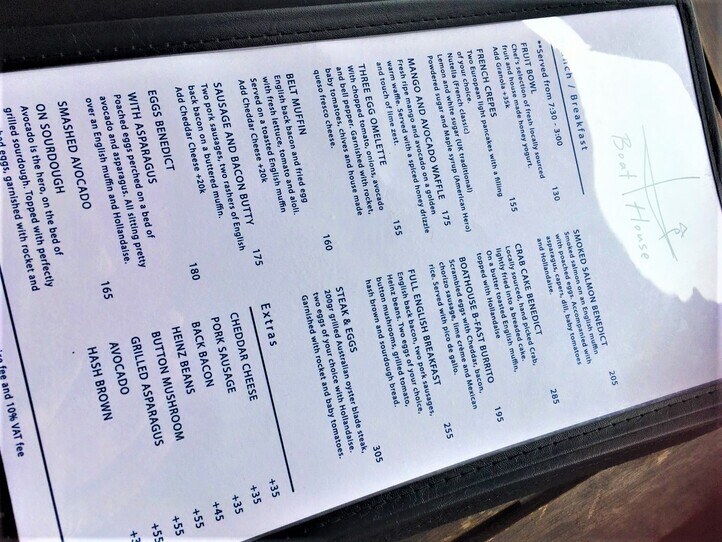 Boat House
nch / Breakfast
**Served from 7:30 - 3:00
FRUIT BOWL 130
Chef's selection of fresh locally sourced
fruit and house made honey yogurt.
Add Granola +35k
FRENCH CREPES 155
Two European light pancakes with a filling
of your choice.
Nutella (French classic)
Lemon and white sugar (UK traditional)
Powdered sugar and Maple syrup (American Hero)
MANGO AND AVOCADO WAFFLE 175
Fresh ripe mango and avocado on a golden
warm waffle. Served with a spiced honey drizzle
and touch of lime zest.
THREE EGG OMELETTE 155
With chopped tomato, onions, avocado
and bell pepper. Garnished with rocket,
baby tomatoes, chives and house made
queso fresco cheese.
BELT MUFFIN 160
English back bacon and fried egg
with fresh lettuce, tomato and aioli.
Served on a toasted English muffin
Add Cheddar Cheese +20k
SAUSAGE AND BACON BUTTY 175
Two pork sausages, two rashers of English
back bacon on a buttered muffin.
Add Cheddar Cheese +20k
EGGS BENEDICT
WITH ASPARAGUS 180
Poached eggs perched on a bed of
avocado and asparagus. All sitting pretty
over an English muffin and Hollandaise.
SMASHED AVOCADO
ON SOURDOUGH 165
Avocado is the hero, on the bed of
grilled sourdough. Topped with perfectly
hed eggs, garnished with rocket and
SMOKED SALMON BENEDICT 205
Smoked salmon on an English muffin
with poached eggs. Accompanied with
asparagus, capers, dill, baby tomatoes
and Hollandaise.
CRAB CAKE BENEDICT 285
Locally sourced, hand picked Crab,
lightly fried into a breaded cake.
On a butter toasted English muffin,
topped with Hollandaise
BOATHOUSE B-FAST BURRITO 195
Scrambled eggs with Cheddar, bacon,
chorizo sausage, lime crème and Mexican
rice. Served with pico de gallo.
FULL ENGLISH BREAKFAST 255
English back bacon, two pork sausages,
Heinz beans. Two eggs of your choice,
button mushrooms, grilled tomato,
hash brown and sourdough bread.
STEAK & EGGS 305
200gr grilled Australian oyster blade steak,
two eggs of your choice with Hollandaise.
Garnished with rocket and baby tomatoes.
Extras
CHEDDAR CHEESE +35
PORK SAUSAGE +35
BACK BACON +35
HEINZ BEANS +45
BUTTON MUSHROOM +55
GRILLED ASPARAGUS +55
AVOCADO +55
HASH BROWN
fee and 10% VAT fee